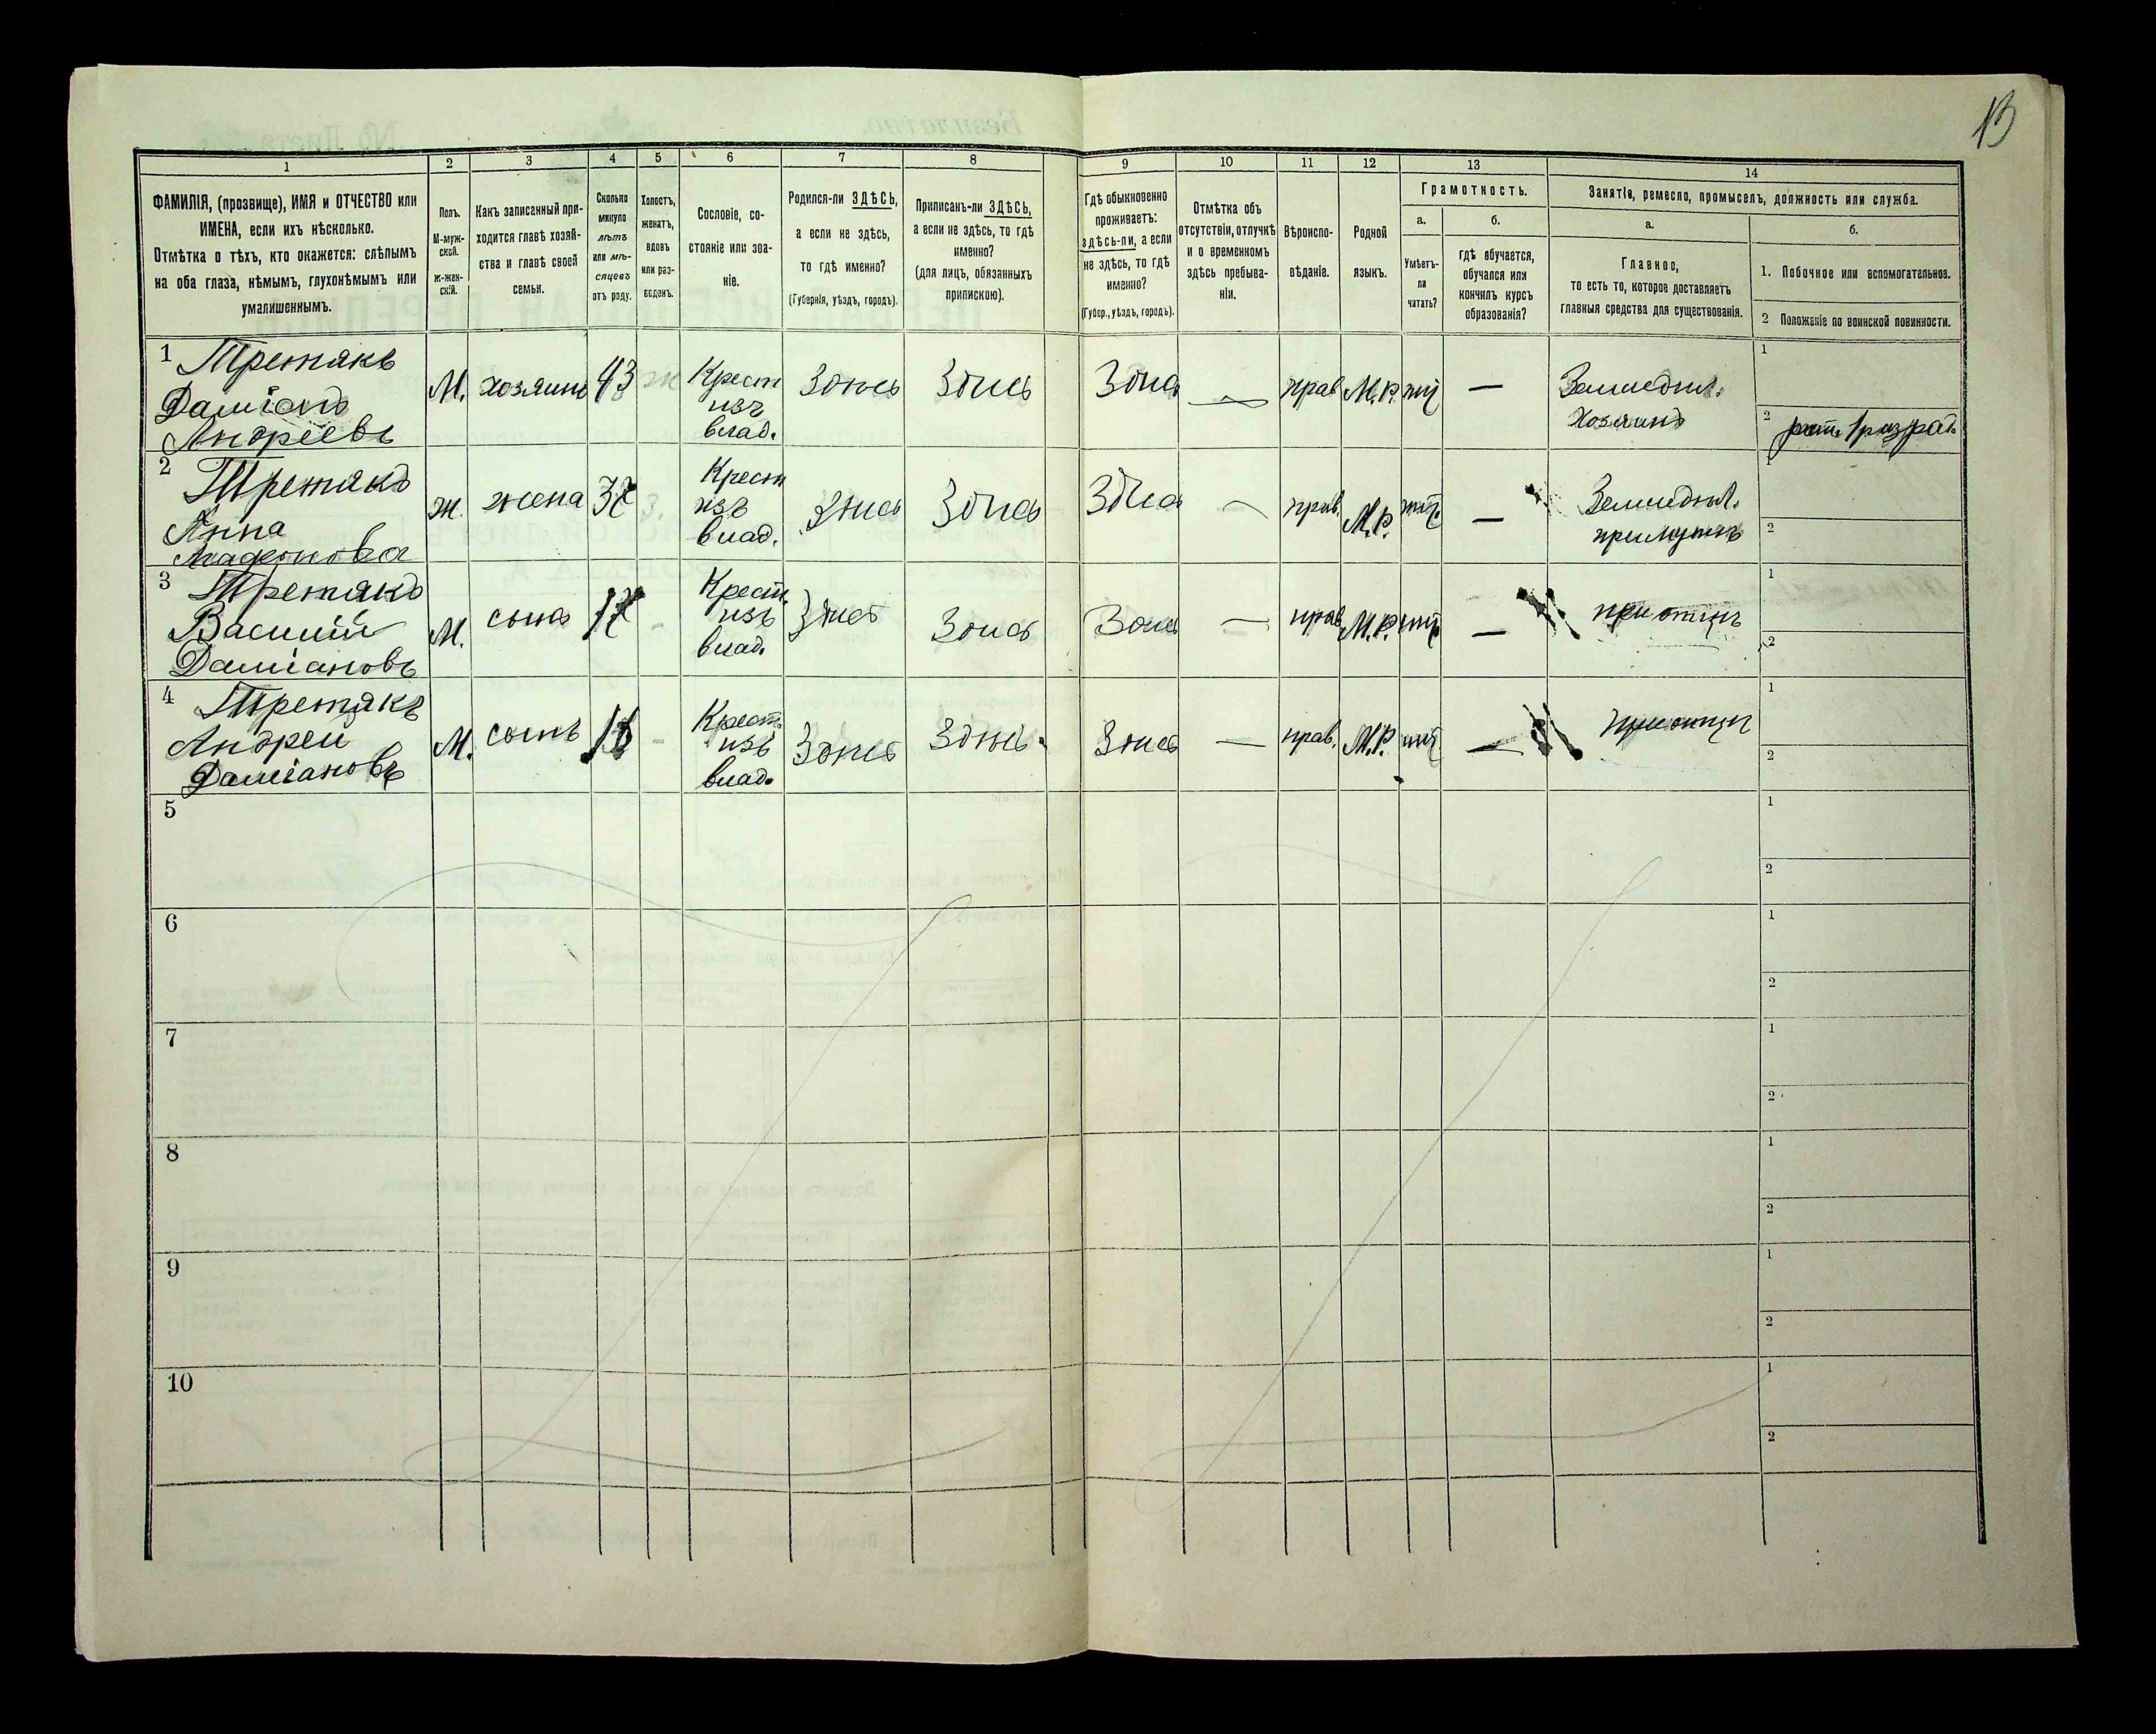 13
1
2
3
4
5
6
7
8
9
10
11
12
13
14
ФАМИЛІЯ, (прозвище), ИМЯ и ОТЧЕСТВО или
ИМЕНА, если ихъ нѣсколько.
Отмѣтка о тѣхъ, кто окажется: слѣпымъ
на оба глаза, нѣмымъ, глухонѣмымъ или
умалишеннымъ.
Полъ.
М-муж-
ской.
ж-жен-
скій.
Какъ записанный при-
ходится главѣ хозяй-
ства и главѣ своей
семьи.
Сколько
минуло
лѣтъ
или мѣ-
сяцевъ
отъ роду.
Холостъ,
женатъ,
вдовъ
или раз-
веденъ.
Сословіе, со-
стояніе или зва-
ніе.
Родился-ли ЗДѢСЬ,
а если не здѣсь,
то гдѣ именно?
(Губернія, уѣздъ, городъ).
Приписанъ-ли ЗДѢСЬ,
а если не здѣсь, то гдѣ
именно?
(для лицъ, обязанныхъ
припискою).
Гдѣ обыкновенно
проживаетъ:
здѣсь-ли, а если
не здѣсь, то гдѣ
именно?
(Губер., уѣздъ, городъ).
Отмѣтка объ
отсутствіи, отлучкѣ
и о временномъ
здѣсь пребыва-
ніи.
Вѣроиспо-
вѣданіе.
Родной
языкъ.
Грамотность.
а.
Умѣетъ-
ли
читать?
б.
гдѣ обучается,
обучался или
кончилъ курсъ
образованія?
Занятіе, ремесло, промыселъ, должность или служба.
а.
Главное,
то есть то, которое доставляетъ
главныя средства для существованія.
б.
1. Побочное или вспомогательное.
2 Положеніе по воинской повинности.
1 Третякъ
Даміанъ
Андреевъ
М. хозяинъ 43 ж Крест
изъ
влад.
Здѣсь Здѣсь Здѣсь — прав. М.Р. — Земледѣл.
Хозяинъ
1
2 рат. 1 разряд.
2 Третякъ
Анна
ж. жена 37 з. Крест
изъ
влад.
Здѣсь Здѣсь Здѣсь — прав. М.Р. — Земледѣл.
при мужѣ
1
2
3 Третякъ
Василій
Даміановъ
М. сынъ 17 - Крест.
изъ
влад.
Здѣсь Здѣсь Здѣсь — прав. М.Р. — при отцѣ
1
2
4 Третякъ
Андрей
Даміановъ
М. сынъ - Крест.
изъ
влад.
Здѣсь Здѣсь Здѣсь — прав. М.Р. — при отцѣ
1
2
5
1
2
6
1
2
7
1
2
8
1
2
9
1
2
10
1
2